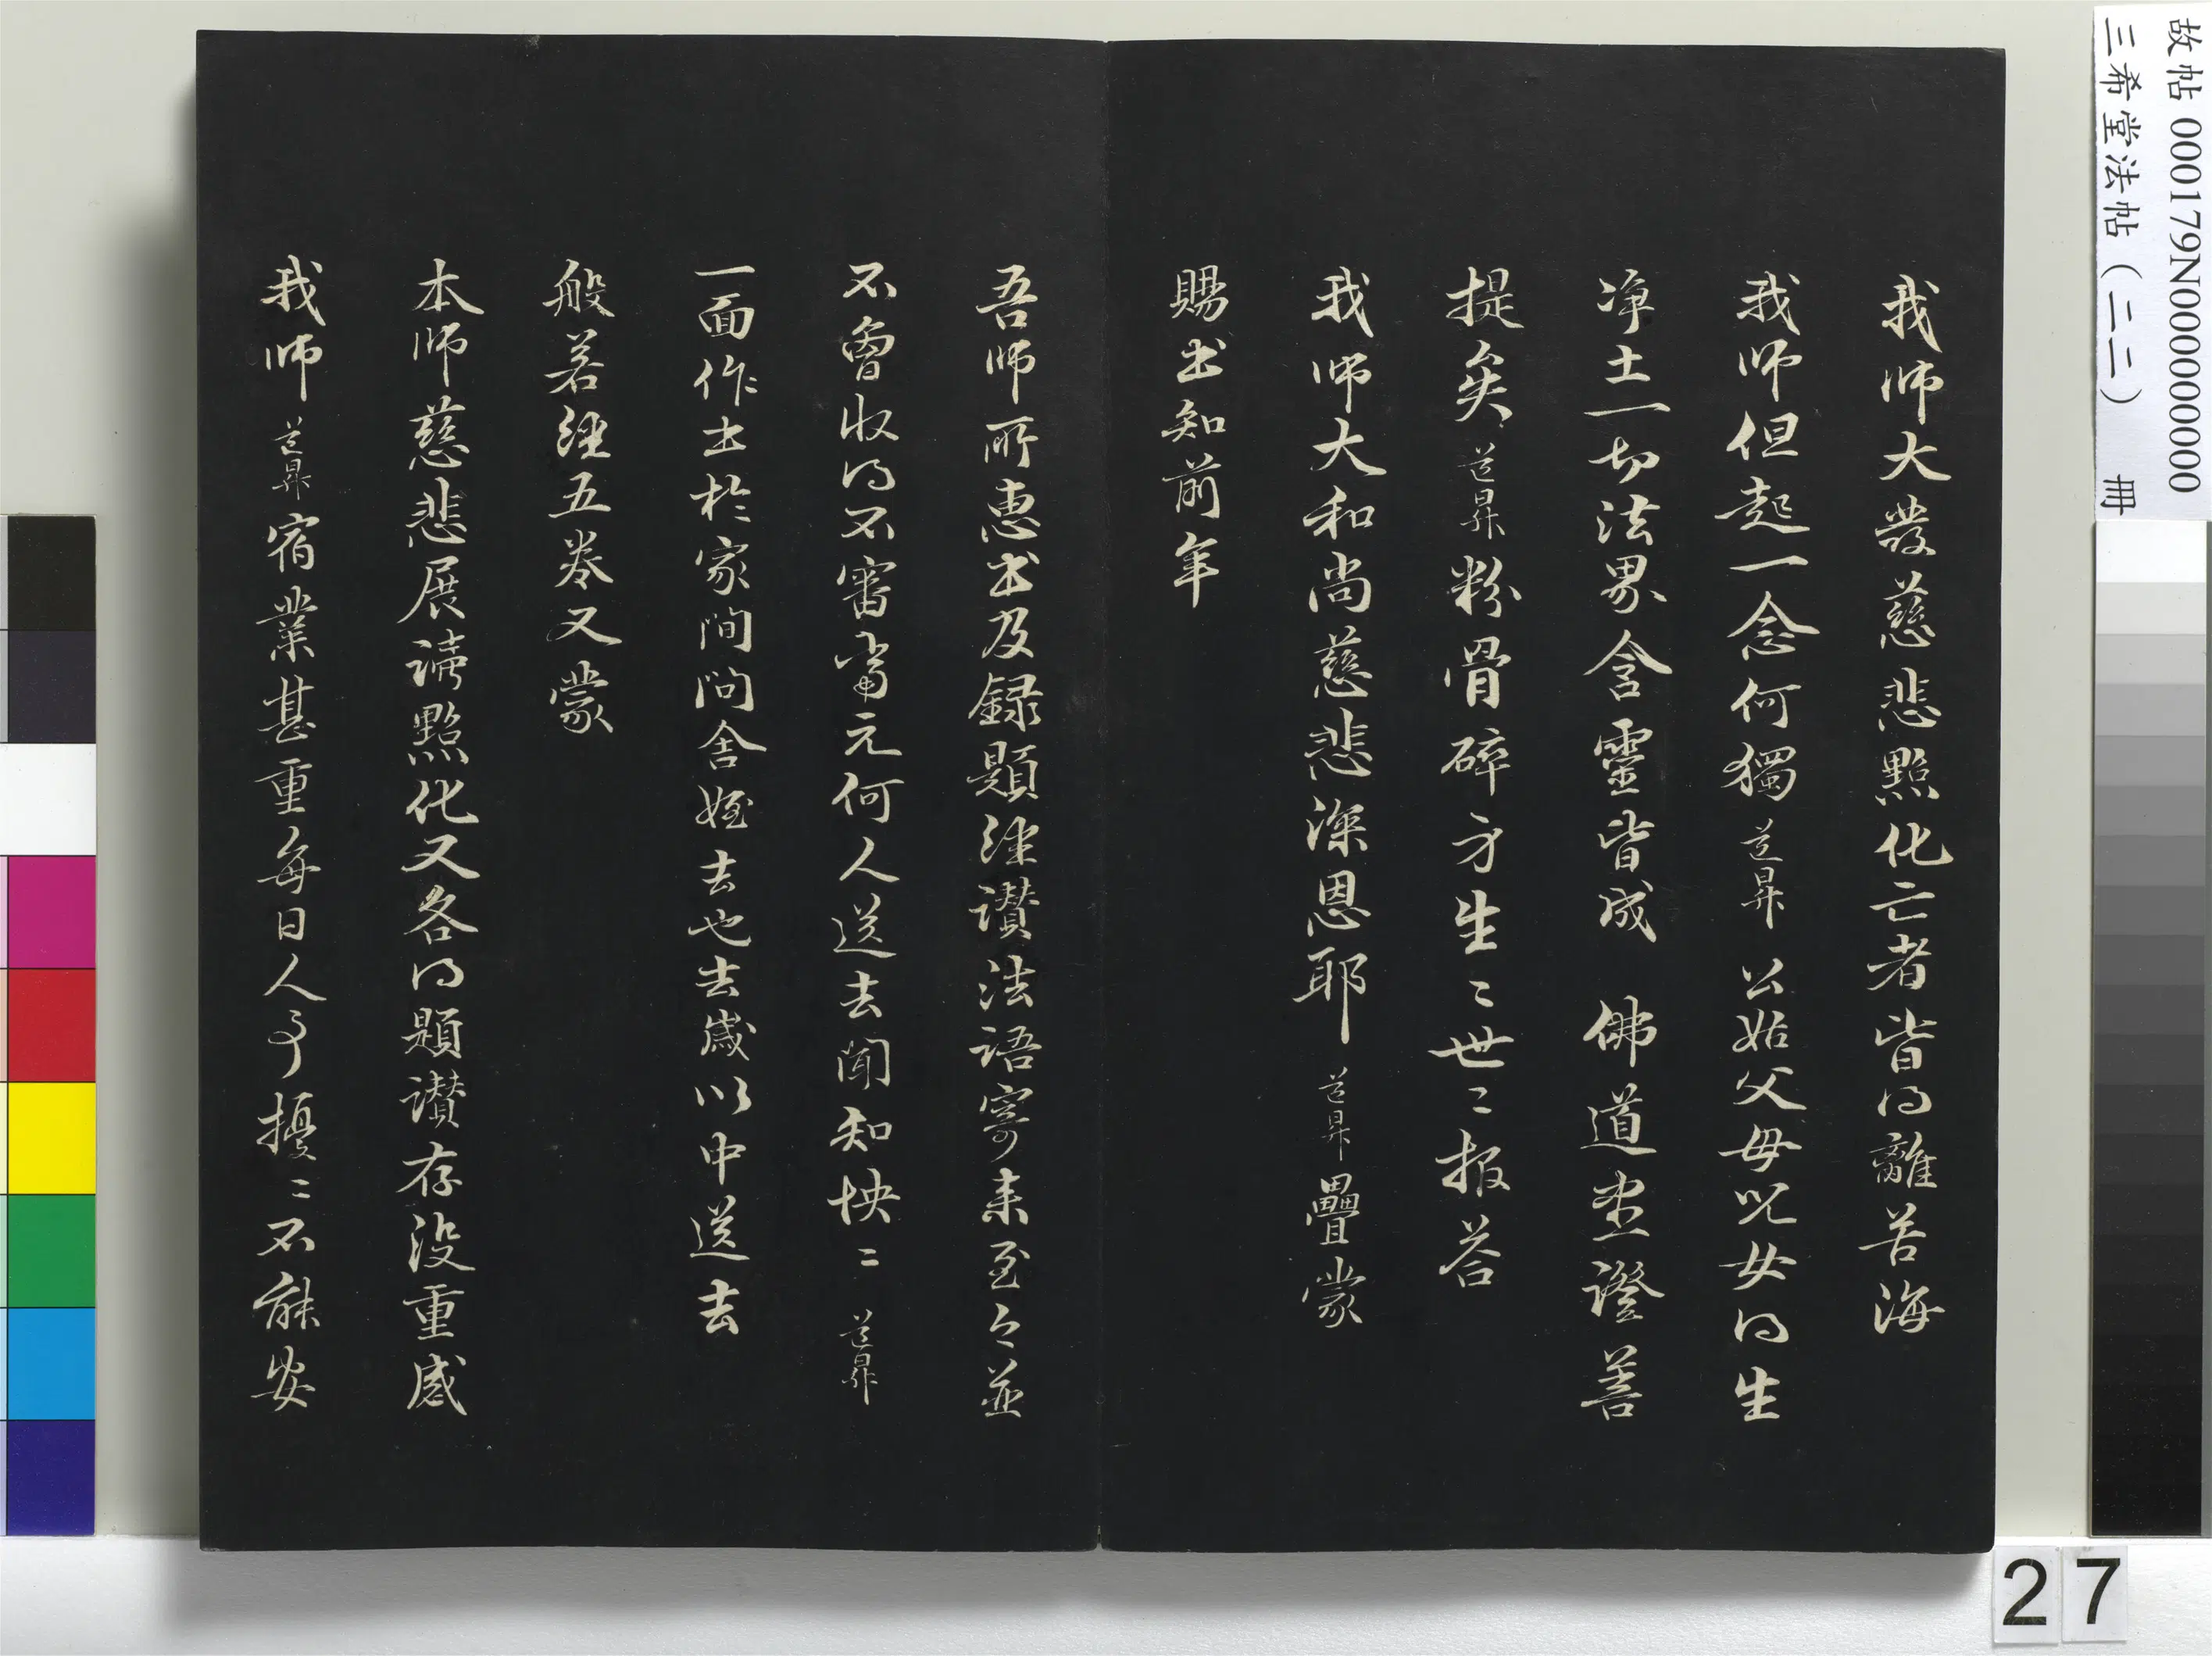 我師大發慈悲點化亡者皆得離苦海
我師但起一念何獨道昇公姑父母兒女得生
淨土一切法界含靈皆成 佛道坐證善
提矣道昇粉骨碎身生〻世〻報答
我師大和尚慈悲深恩耶道昇疊蒙
賜書知前年
吾師所惠書及錄題經讚法語寄來至今並
不曾收得不審當元何人送去聞知怏〻道昇
一面作書於家間問舍姪去也去歲以中送去
般若經五卷又蒙
本師慈悲展讀點化又各得題讚存沒重感
我師道昇宿業甚重每日人事擾〻不能安
故帖 000179N000000000
三希堂法帖（二二） 冊
27